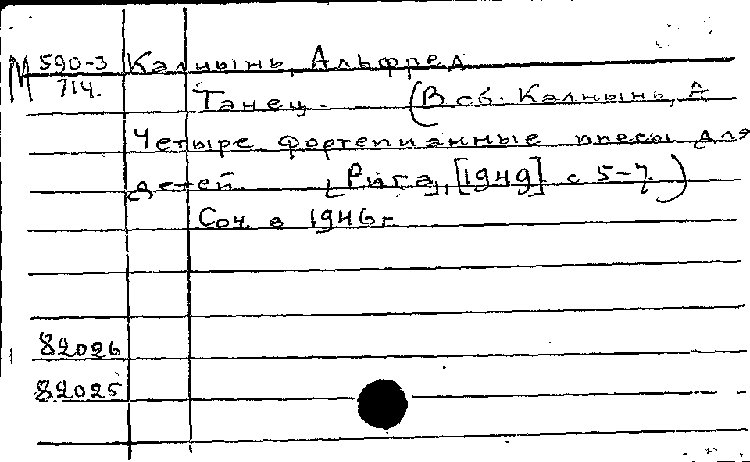 М 590-3 Калнынь, Альфред
714. Танец. (В сб. Калнынь, А
Четыре фортепианные пьесы для
детей. [Рига], [1949] с 5-7.)
Соч. в 1946 г
82026
82025